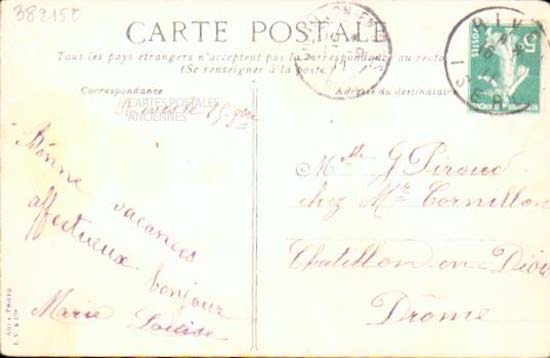 382150
CARTE POSTALE
Tous les pays étrangers n'acceptent pas la correspondance au recto
(Se renseigner à la poste)
Correspondance
Adresse du destinataire
CARTES POSTALES
ANCIENNES
Bonne vacances
affectueux bonjour
Marie Louise
Mlle G Piroud
chez Mr Cornillon
Chatillon en Diois
Drôme
RIVES
5
POSTES
AQUA PHOTO
L.V. & Cie